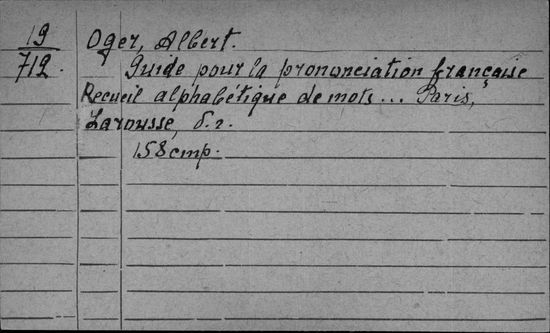 19
712.
Oger, Albert.
Guide pour la prononciation française
Recueil alphabétique de mots... Paris,
Larousse, б.г.
158 стр.